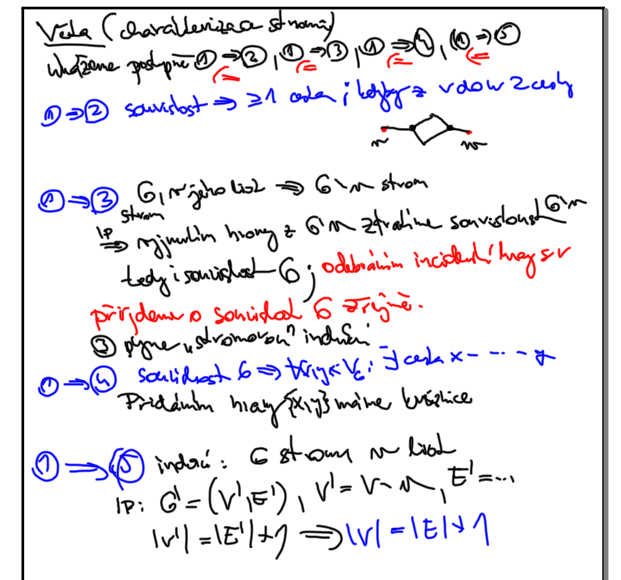 Věta (charakterizace stromů)
Ukážeme postupně ①⇒②, ①⇒③, ①⇒④, ①⇒⑤
⇐ ⇐ ⇐ ⇐
①⇒② souvislost ⇒ ≥1 cesta; kdyby z v do w 2 cesty
v w
①⇒③ G, v jeho list ⇒ G\v strom
strom
IP ⇒ vyjmutím hrany z G\v ztratíme souvislost G\v
tedy i souvislost G; odebráním incidentní hrany s v
přijdeme o souvislost G zřejmě.
③ plyne „stromovou" indukcí
①⇒④ souvislost G ⇒ ∀x,y∈V_G: ∃ cesta x-...-y
Přidáním hrany {x,y} máme kružnice
①⇒⑤ indukcí: G strom v list
IP: G' = (V', E'), V' = V - v, E' = ...
|V'| = |E'| + 1 ⇒ |V| = |E| + 1